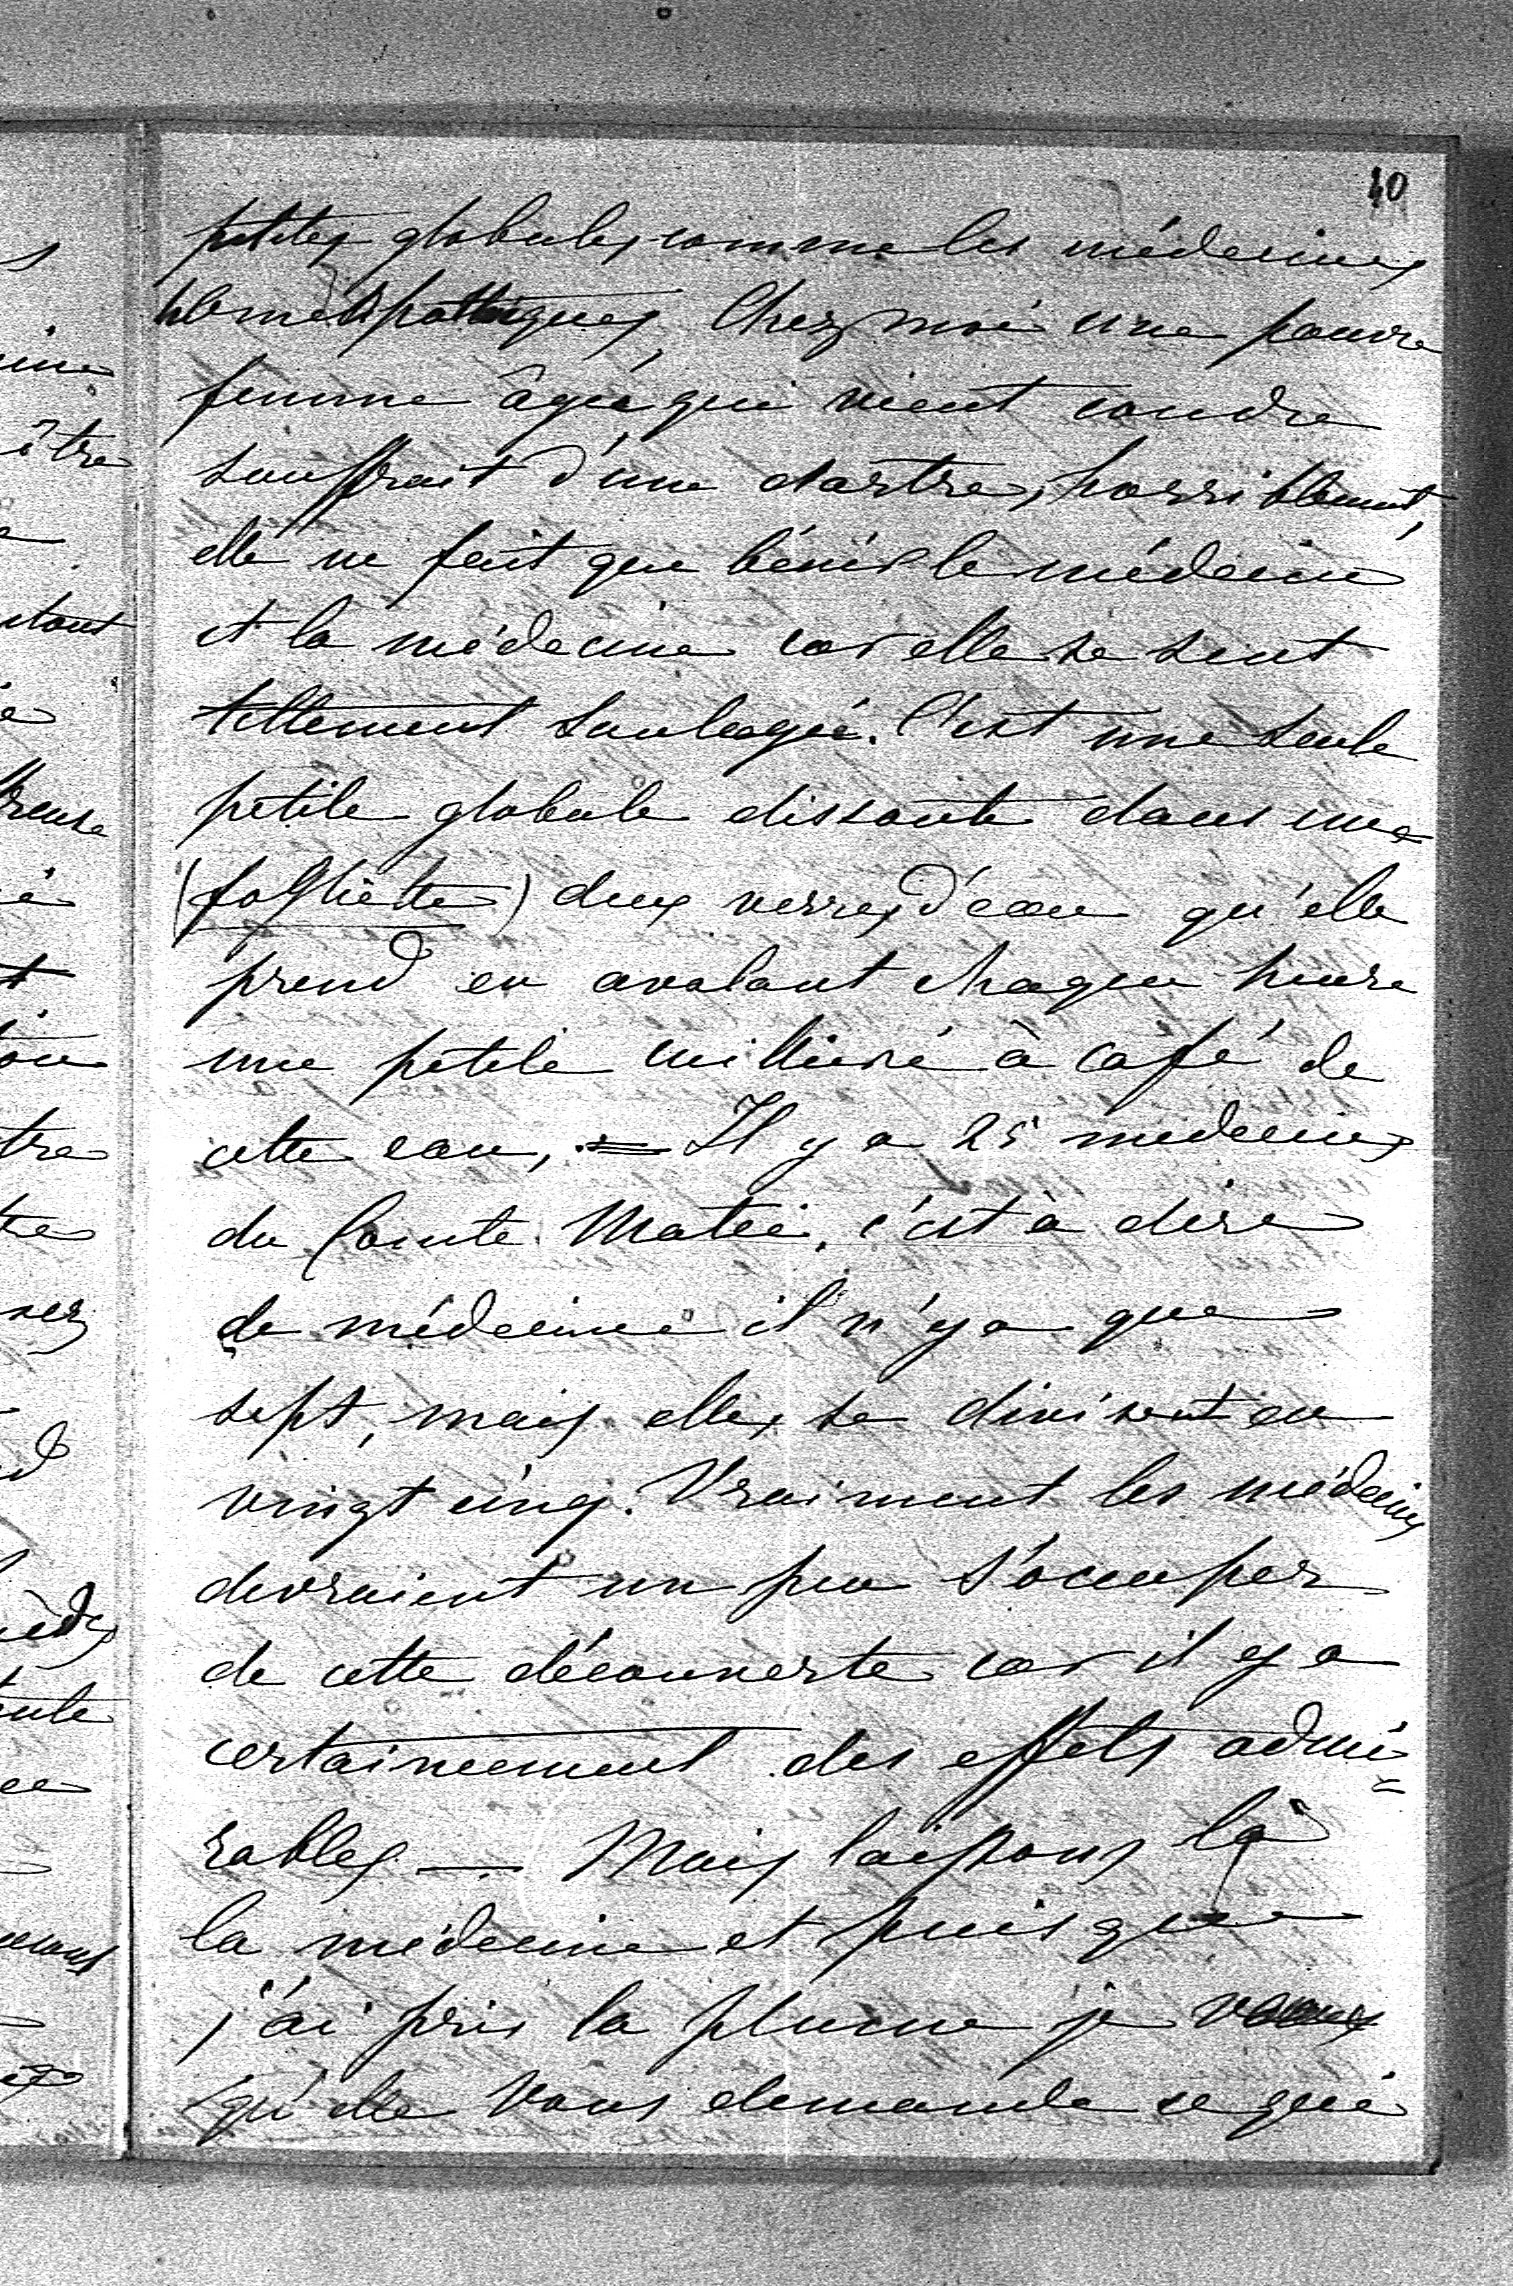 40
petites globules comme les médecines
homéopathiques, Chez moi une pauvre
femme âgée qui vient coudre
souffrait d'une dartre, horriblement,
elle ne fait que bénir le médecin
et la médecine car elle se sent
tellement soulagée. C'est une seule
petite globule dissoute dans une
(fogliette) deux verres d'eau qu'elle
prend en avalant chaque heure
une petite cuillière à café de
cette eau, = Il y a 25 médecines
du Comte Mateï, c'est à dire
de médecine il n'y a que
sept, mais elles se divisent en
vingt cinq. Vraiment les médecins
devraient un peu s'occuper
de cette découverte car il y a
certainement des effets admi=
rables — Mais laissons là
la médecine et puisque
j'ai pris la plume je veux
qu'elle vous demande ce qui